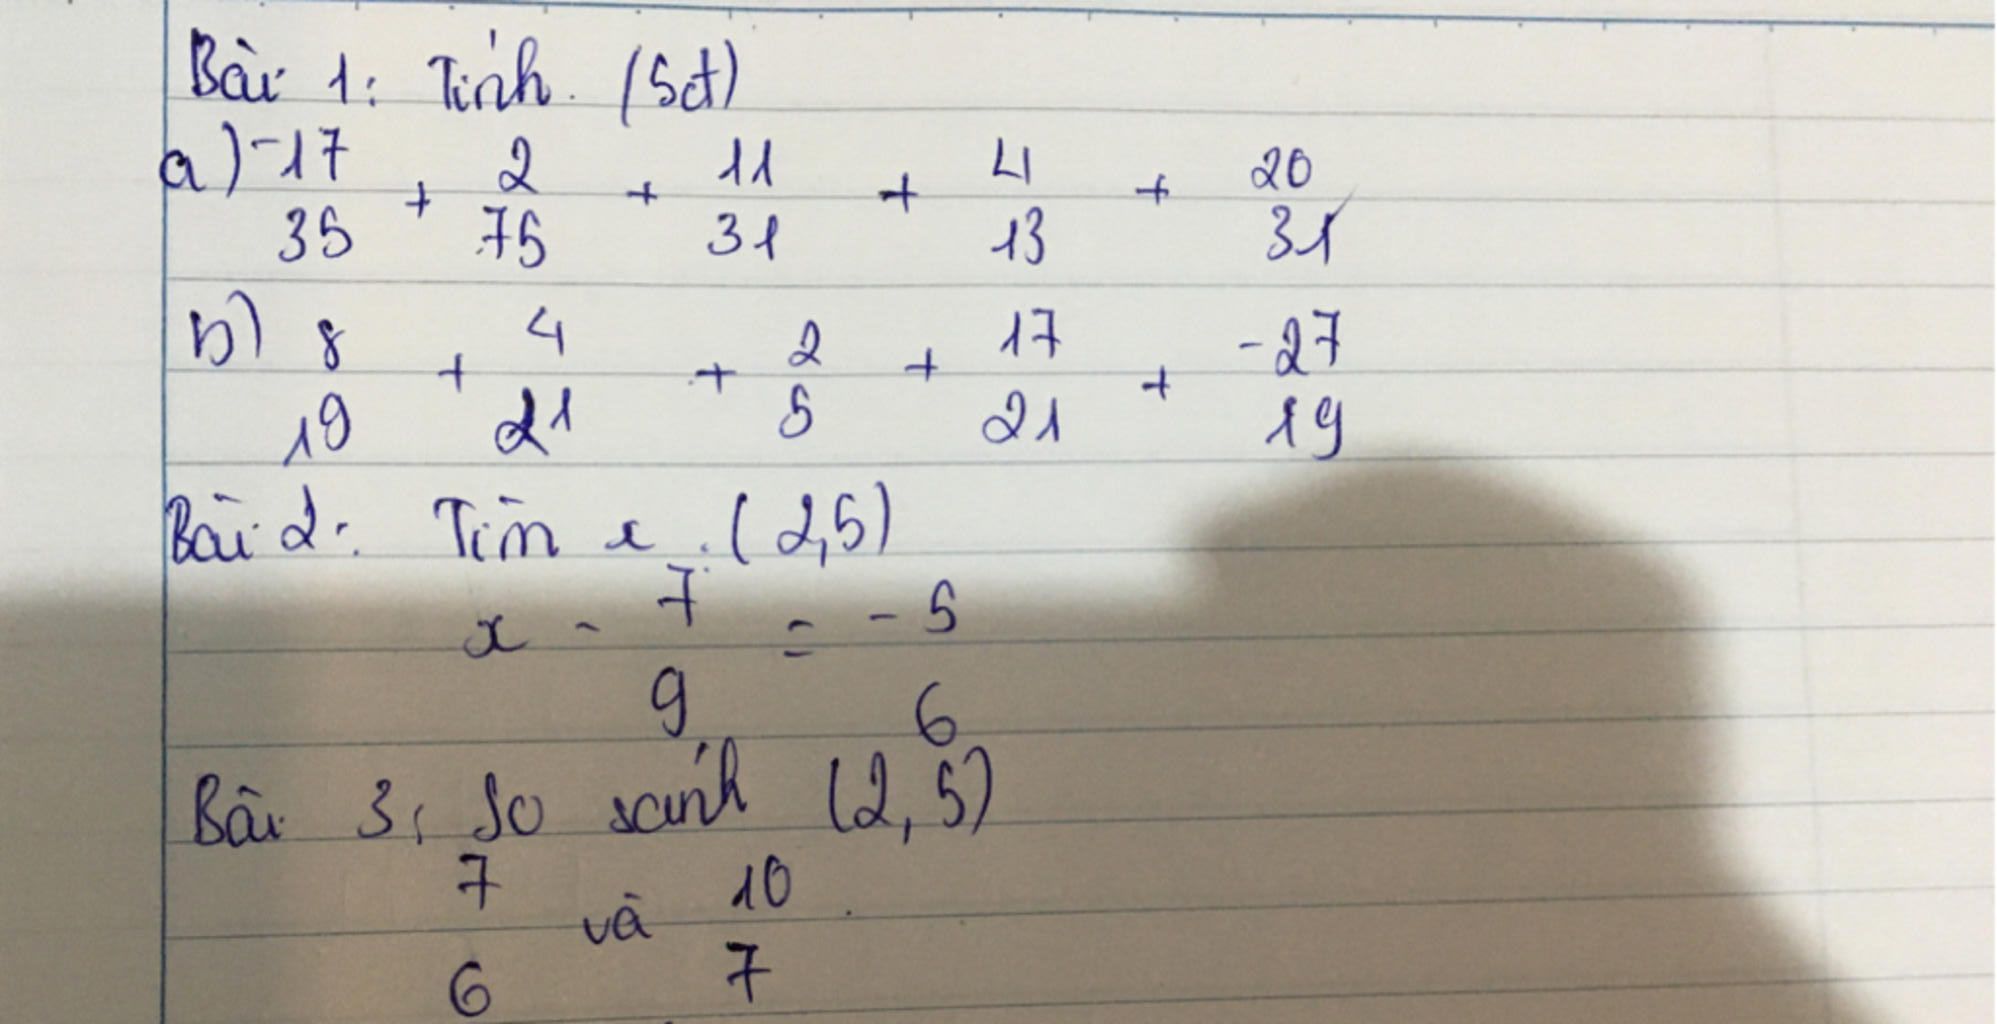 Bài 1: Tính. (5đ)
a) -17/35 + 2/75 + 11/31 + 4/13 + 20/31
b) 8/19 + 4/21 + 2/5 + 17/21 + -27/19
Bài 2: Tìm x. (2,5)
x - 7/9 = -5/6
Bài 3: So sánh (2,5)
7/6 và 10/7.